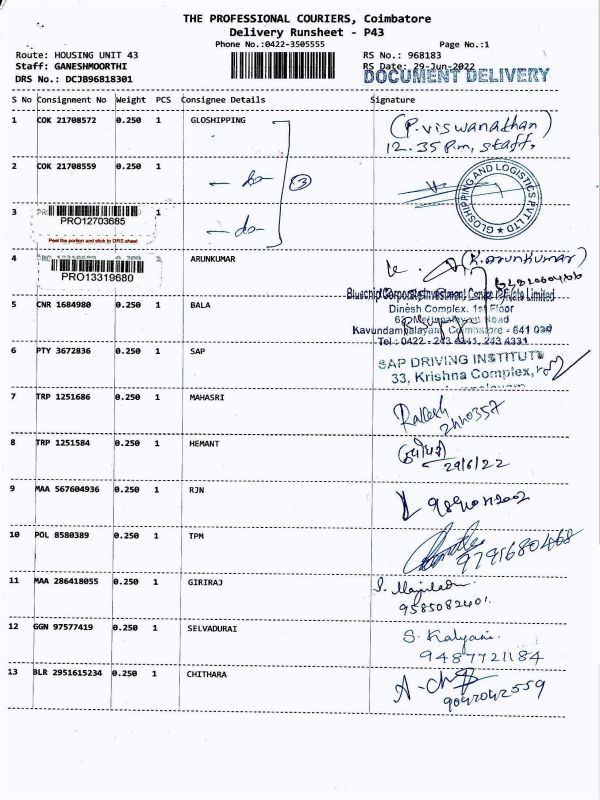 THE PROFESSIONAL COURIERS, Coimbatore
Delivery Runsheet - P43
Phone No.:0422-3505555 Page No.:1
Route: HOUSING UNIT 43 RS No.: 968183
Staff: GANESHMOORTHI RS Date: 29-Jun-2022
DRS No.: DCJB96818301 DOCUMENT DELIVERY
S No Consignment No Weight PCS Consignee Details Signature
1 COK 21708572 0.250 1 GLOSHIPPING (P.Viswanathan)
12.35 P.m, staff,
2 COK 21708559 0.250 1 - do - 3
GLOSHIPPING AND LOGISTICS PVT LTD
3 PRO12703685 1 - do -
Peel the portion and stick to DRS sheet
4 PRO13319680 1 ARUNKUMAR (K.Arunkumar)
Bluechip Corporate Investment Centre Private Limited
5 CNR 1684980 0.250 1 BALA Dinesh Complex, 1st Floor
Kavundampalayam, Coimbatore - 641 030
Tel : 0422 - 243 4331
6 PTY 3672836 0.250 1 SAP SAP DRIVING INSTITUTE
33, Krishna Complex,
7 TRP 1251686 0.250 1 MAHASRI Rakesh
8 TRP 1251584 0.250 1 HEMANT
29/6/22
9 MAA 567604936 0.250 1 RJN
10 POL 8580389 0.250 1 TPM
9791680468
11 MAA 286418055 0.250 1 GIRIRAJ
9585082401.
12 GGN 97577419 0.250 1 SELVADURAI S. Kalyani.
9487721184
13 BLR 2951615234 0.250 1 CHITHARA
9042042559